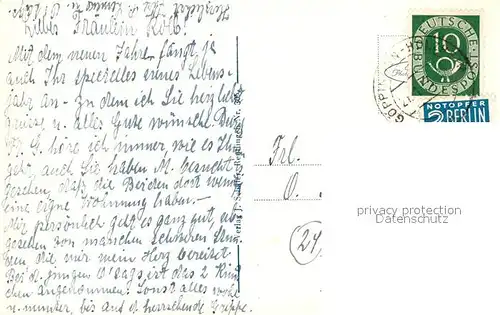 Liebes Fräulein Kolb!
Mit dem neuen Jahre fängt ja
auch Ihr spezielles neues Lebens-
jahr an - zu dem ich Sie herzlich
grüsse u. alles Gute wünsche. Durch
G. höre ich immer, wie es Ihnen
geht, auch Sie haben M. besucht
gesehen, daß die Beiden dort
eine eigne Wohnung haben. -
Mir persönlich geht es ganz gut, ab-
gesehen von manchen schweren Stun-
den die mir mein Herz bereitet.
Bei d. jungen ist das 2 Kind-
chen angekommen. Sonst alles wohl
u. munter, bis auf d. herrschende Grippe.
Herzlichst Ihr
Frl.
O.
24
DEUTSCHE
BUNDESPOST
10
NOTOPFER
2 BERLIN
GÖPPIN
privacy protection
Datenschutz